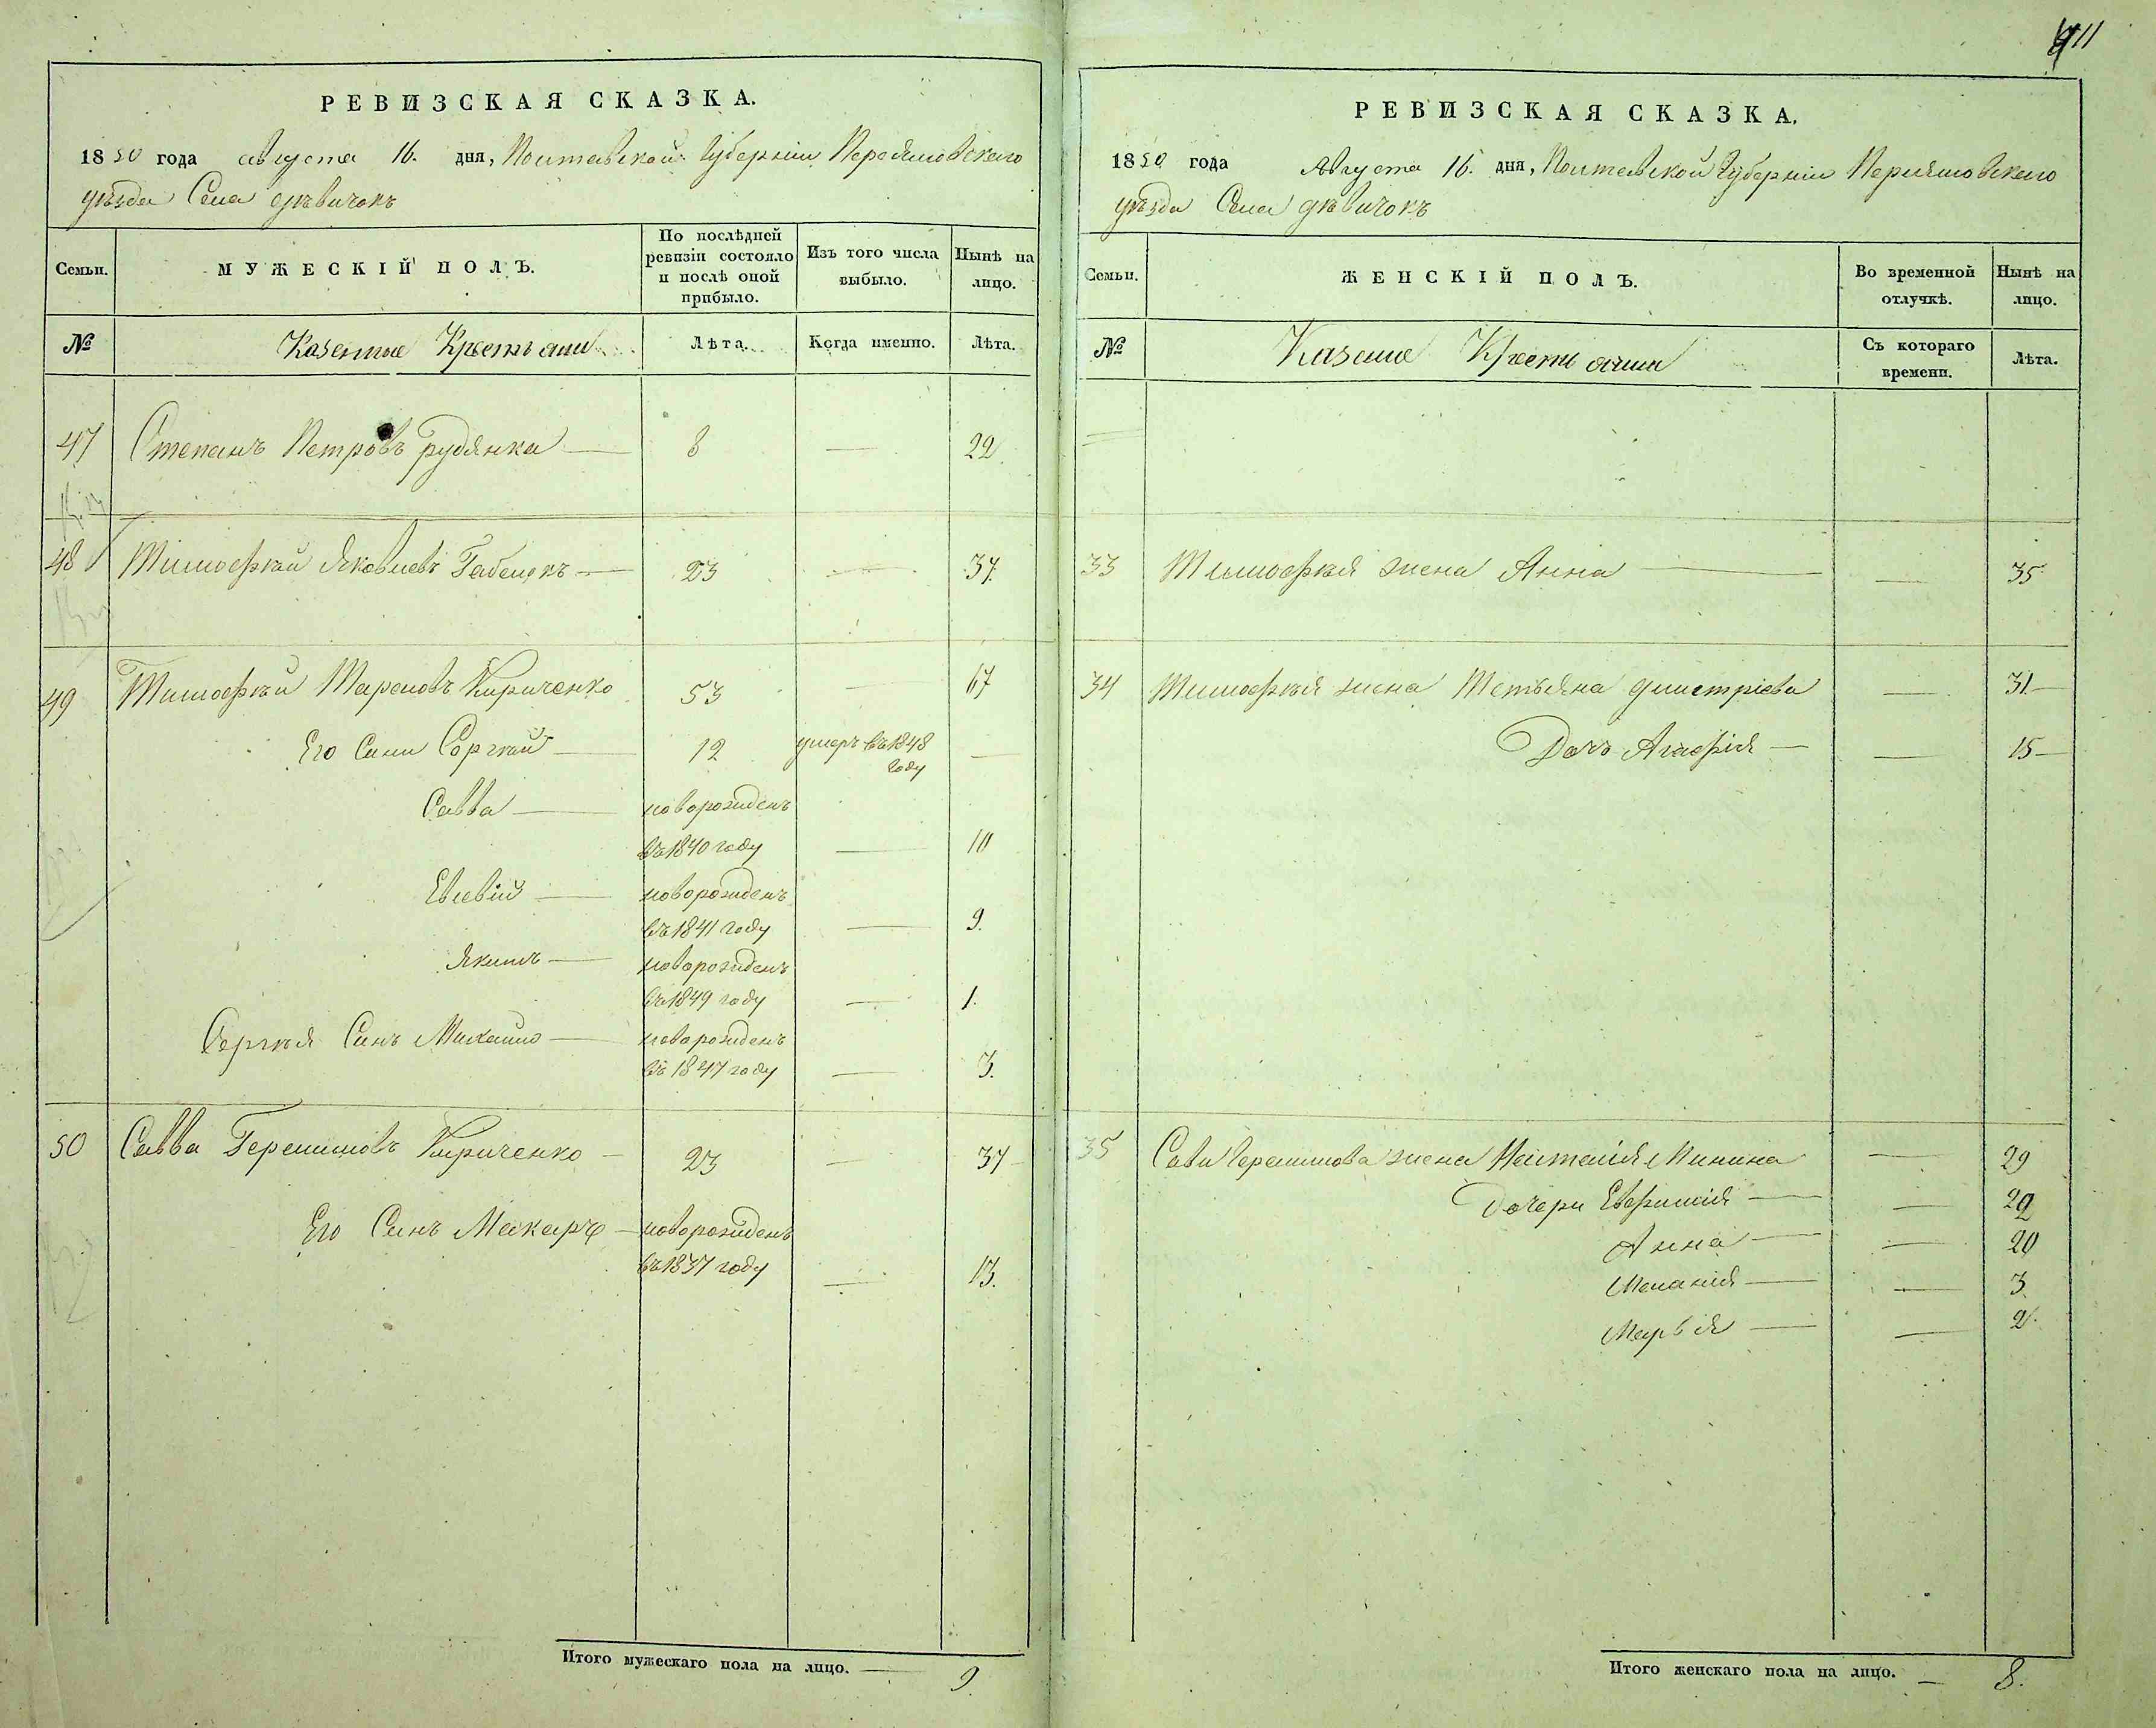 11
РЕВИЗСКАЯ СКАЗКА.
1850 года августа 16. дня, Полтавской Губерніи Переяславского
уѣзда Села дѣвичокъ
Семьи.
МУЖЕСКІЙ ПОЛЪ.
По послѣдней ревизіи состояло и послѣ оной прибыло.
Изъ того числа выбыло.
Нынѣ на лицо.
№
Казенные Крестьяни
Лѣта.
Когда именно.
Лѣта.
47 Степанъ Петровъ Рудянка — 8 — 22
48 Тимофѣй Яковлевъ — 23 — 37.
49 Тимофѣй Тарасовъ Кириченко 53 — 67
Его Сини Сергѣй — 12 умеръ въ 1848 —
году
Савва — новорожденъ
въ 1840 году — 10
Евсевій — новорожденъ
въ 1841 году — 9.
Якимъ — новорожденъ
въ 1849 году — 1.
Сергѣя Синъ Михайло — новорожденъ
въ 1847 году — 3.
50 Савва Герасимовъ Кириченко — 23 — 37
Его Синъ Макаръ — новорожденъ
въ 1837 году — 13.
Итого мужескаго пола на лицо. — 9
РЕВИЗСКАЯ СКАЗКА.
1850 года Августа 16. дня, Полтавской Губерніи Переяславского
уѣзда Села дѣвичокъ
Семьи.
ЖЕНСКІЙ ПОЛЪ.
Во временной отлучкѣ.
Нынѣ на лицо.
№
Казене Крестьянии
Съ котораго времени.
Лѣта.
33 Тимофѣя жена Анна — — 35
34 Тимофѣя жена Тетьяна дмитріева — 31
Дочъ Агафія — — 15
35 Сави Герасимова жена Наталія Минина — 29
Дочери Евфимія — — 22
Анна — — 20
Меланія — — 3
Марья — — 2.
Итого женскаго пола на лицо. — 8.